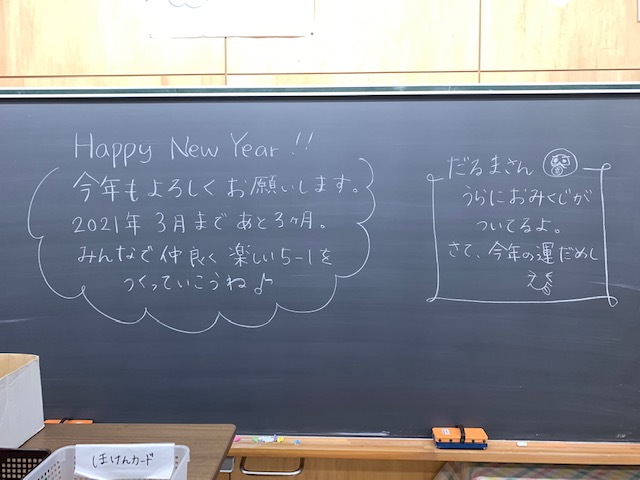 Happy New Year!!
今年もよろしくお願いします。
2021年3月まであと3ヶ月。
みんなで仲良く楽しい5-1を
つくっていこうね♪
だるまさん
うらにおみくじが
ついてるよ。
さて、今年の運だめし
は
ほけんカード